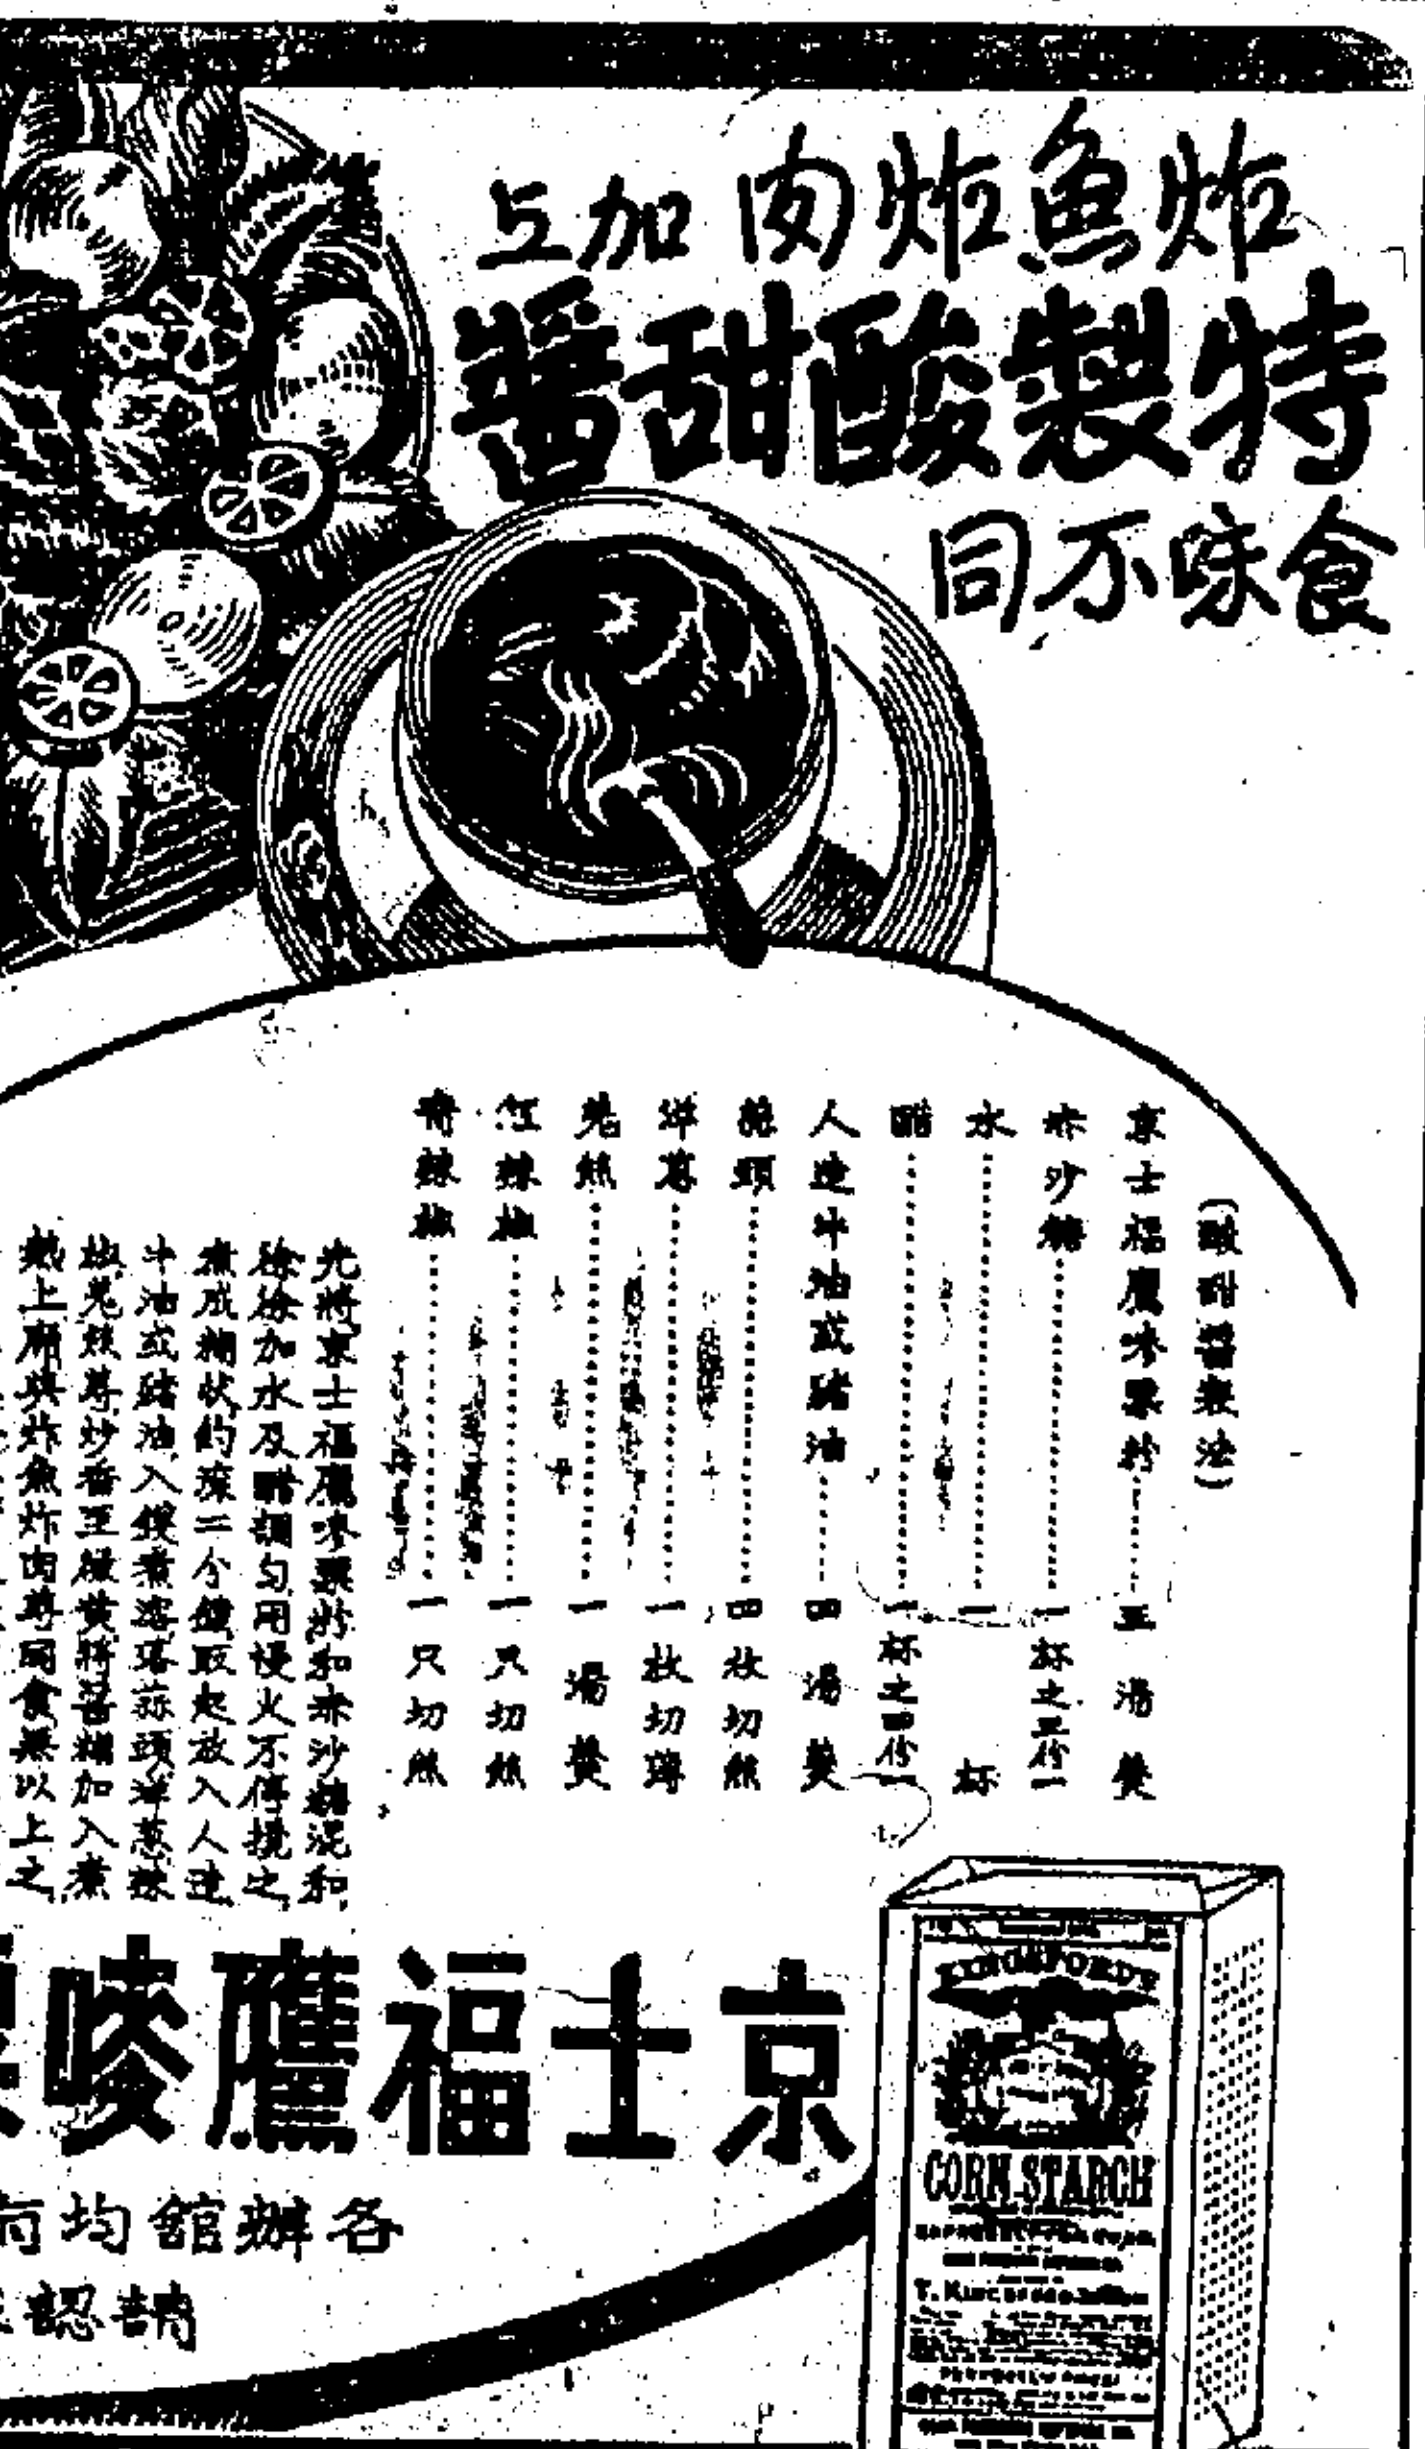 炸魚炸肉加上
特製酸甜醬
食味不同
(酸甜醬製法)
京士福鷹嘜粟粉……五湯羮
赤沙糖……一杯之三份一
水……一杯
醋……一杯之四份一
人造牛油或豬油……四湯羮
蒜頭……四枚切絲
洋葱……一枚切薄
羗絲……一湯羮
紅辣椒……一只切絲
青辣椒……一只切絲
先將京士福鷹嘜粟粉和赤沙糖混和,
徐徐加水及醋調勻用慢火不停攪之,
煮成糊狀約煑二分鐘取起放入人造
牛油或豬油入鑊煮溶落蒜頭洋葱辣
椒羗絲等炒香至微黃將醬糊加入煮
熱上席與炸魚炸肉等同食無以上之
京士福鷹嘜粟
各辦館均有
請認
KINGSFORD'S
CORN STARCH